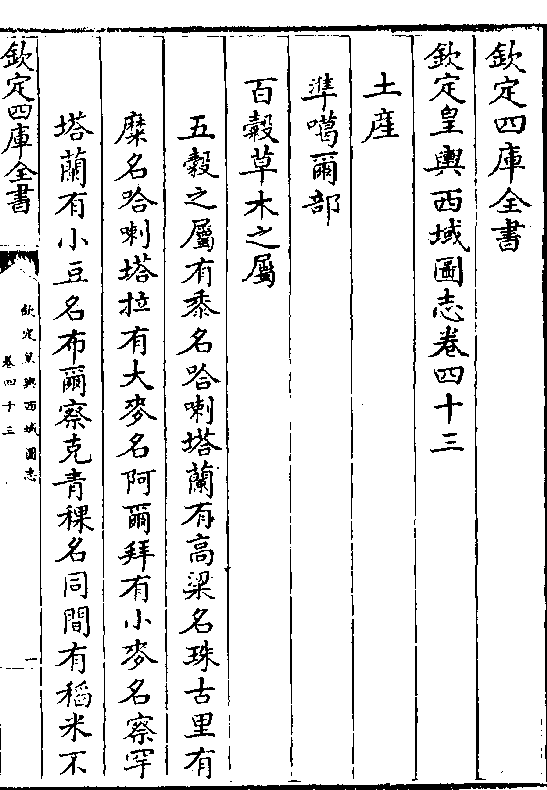 欽定四庫全書
欽定皇輿西域圖志卷四十三
土產
準噶爾部
百穀草木之屬
五穀之屬有黍名哈喇塔蘭有高粱名珠古里有
糜名哈喇塔拉有大麥名阿爾拜有小麥名察罕
塔蘭有小豆名布爾察克青稞名同間有稻米不
欽定四庫全書
欽定皇輿西域圖志
卷四十三
一